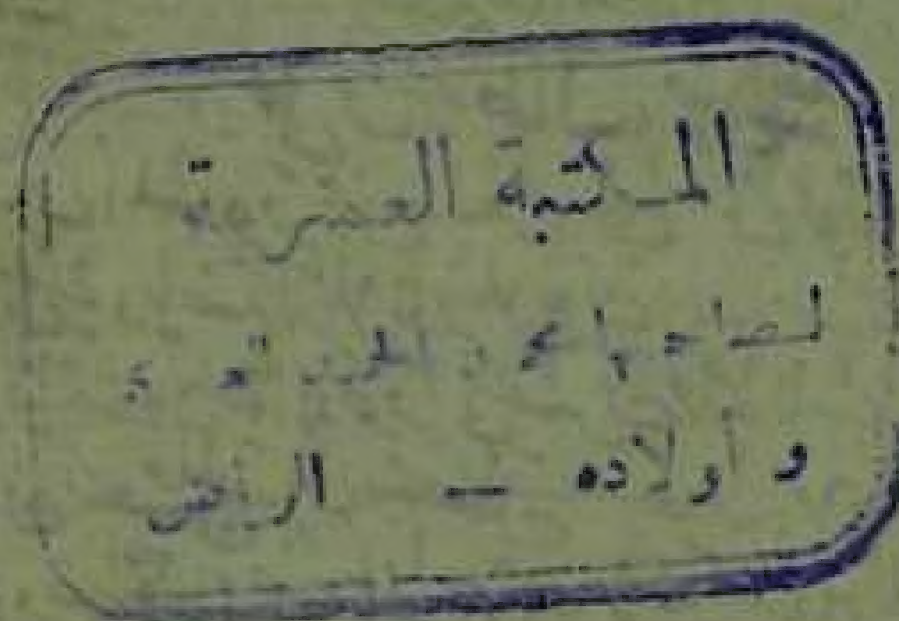 المكتبة العصرية
لصاحبها
وأولاده – الرياض